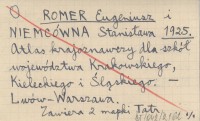 ROMER Eugeniusz i
NIEMCÓWNA Stanisława 1925.
Atlas krajoznawczy dla szkół
województwa Krakowskiego,
Kieleckiego i Śląskiego. —
Lwów-Warszawa.
Zawiera 2 mapki Tatr.